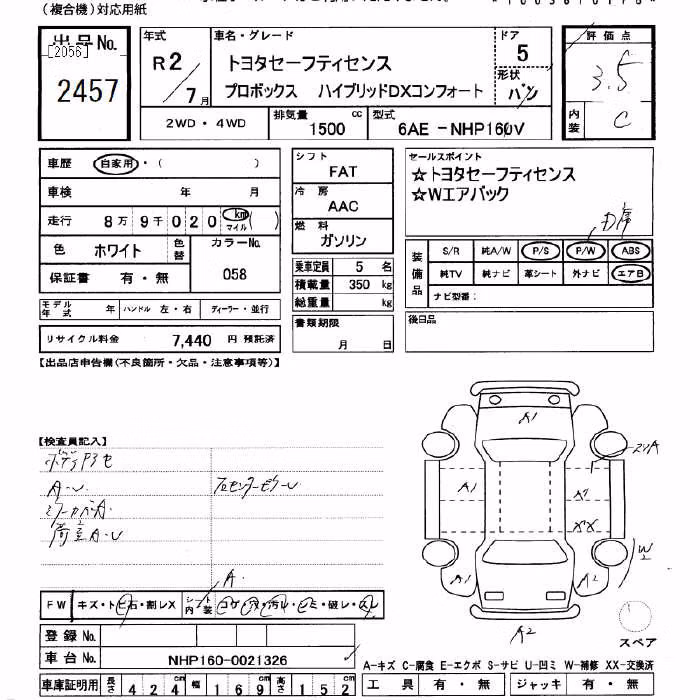 (複合機)対応用紙
出品No.
[2056]
2457
年式
R2/7月
車名・グレード
トヨタセーフティセンス
プロボックス ハイブリッドDXコンフォート
ドア
5
形状
バン
評価点
3.5
内装
C
2WD・4WD
排気量
1500 cc
型式
6AE-NHP160V
車歴 自家用・( )
車検 年 月
走行 8万9千020 km マイル( )
色 ホワイト 色替
カラーNo.
058
保証書 有・無
モデル年式 年 ハンドル 左・右 ディーラー・並行
リサイクル料金 7,440 円 預託済
シフト
FAT
冷房
AAC
燃料
ガソリン
乗車定員 5 名
積載量 350 kg
総重量 kg
書類期限
月 日
セールスポイント
☆トヨタセーフティセンス
☆Wエアバック
装備品
S/R 純A/W P/S P/W ABS
純TV 純ナビ 革シート 外ナビ エアB
ナビ型番:
後日品
【出品店申告欄(不良箇所・欠品・注意事項等)】
【検査員記入】
A・U
A
FW キズ・トビ石・割レX
シート内装 コゲ・穴・汚レ・シミ・破レ・スレ
登録No.
車台No. NHP160-0021326
車庫証明用 長さ 424cm 幅 169cm 高さ 152cm
A1
A1
A1
A2
A2
XX
W2
スペア
A-キズ C-腐食 E-エクボ S-サビ U-凹ミ W-補修 XX-交換済
工具 有・無 ジャッキ 有・無